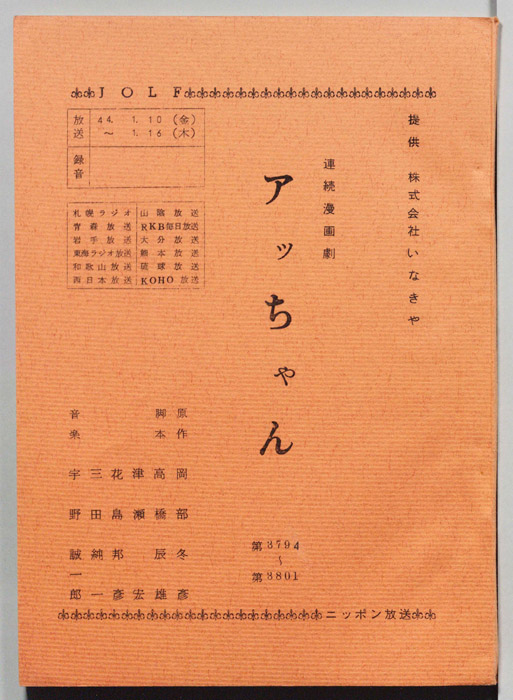 JOLF
提供 株式会社いなきや
連続漫画劇
アッちゃん
第3794
~
第3801
放送 44. 1. 10 (金)
~ 1. 16 (木)
録音
札幌ラジオ 山陰放送
青森放送 RKB毎日放送
岩手放送 大分放送
東海ラジオ放送 熊本放送
和歌山放送 琉球放送
西日本放送 KOHO放送
原作 岡部冬彦
脚本 高橋辰雄
津瀬宏
花島邦彦
三田純一
音楽 宇野誠一郎
ニッポン放送